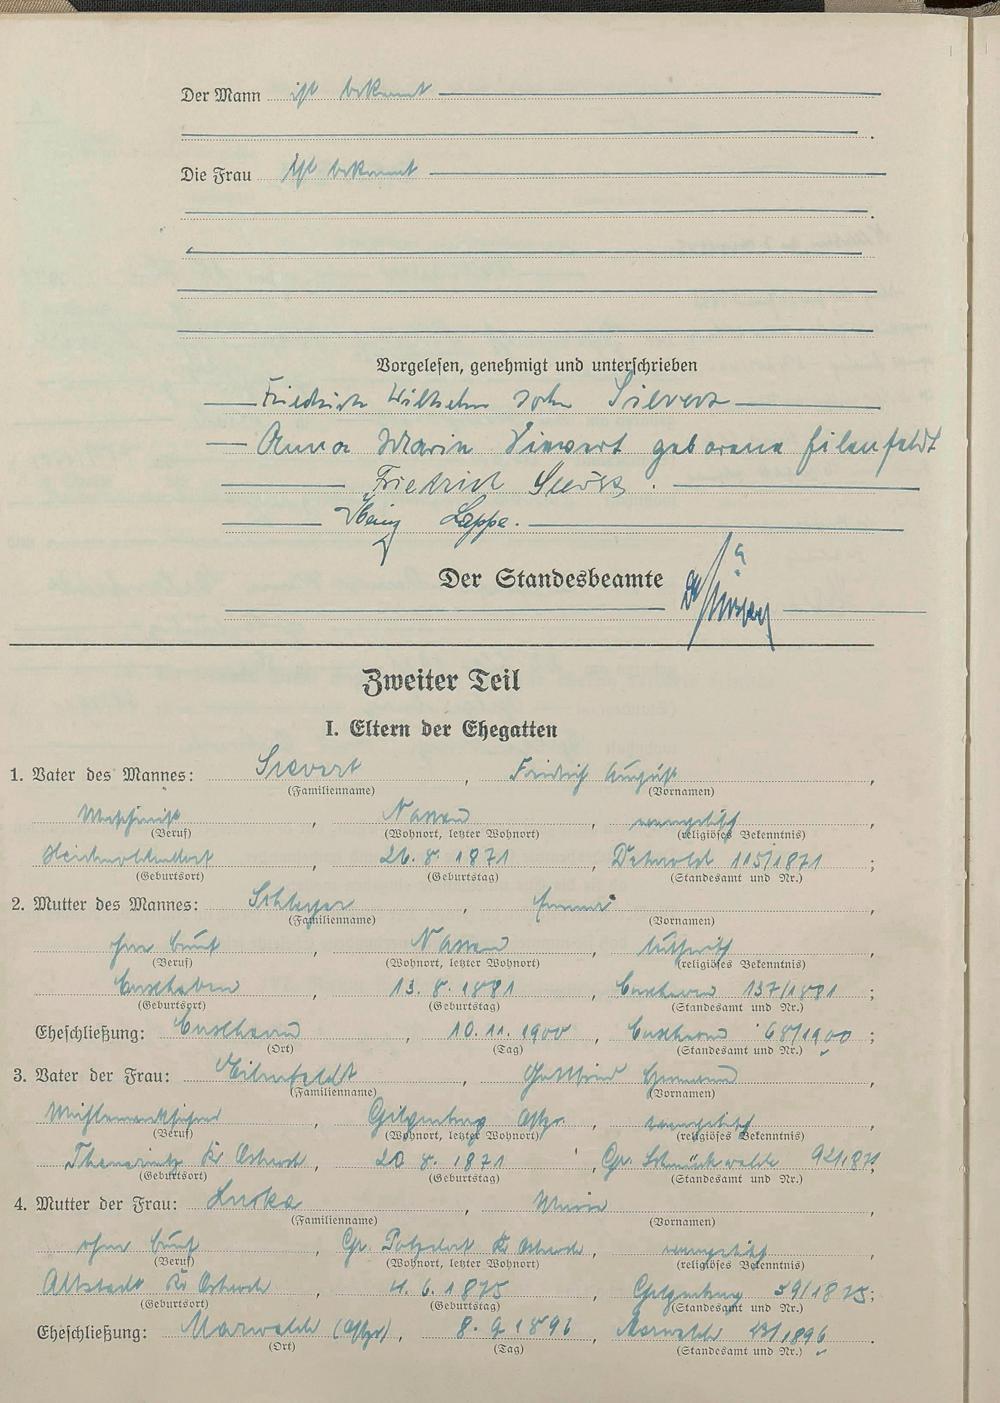 Der Mann ist bekannt
Die Frau ist bekannt
Vorgelesen, genehmigt und unterschrieben
Friedrich Wilhelm John Sievert
Anna Maria Siewert geborene Eilenfeldt
Friedrich
Heinz Lappe.
Der Standesbeamte
Zweiter Teil
I. Eltern der Ehegatten
1. Vater des Mannes: Sievert, Friedrich August,
(Familienname) (Vornamen)
Maschinist, Nassau, evangelisch,
(Beruf) (Wohnort, letzter Wohnort) (religiöses Bekenntnis)
26.8.1871, Detmold 115/1871;
(Geburtsort) (Geburtstag) (Standesamt und Nr.)
2. Mutter des Mannes: , Emma,
(Familienname) (Vornamen)
ohne Beruf, Nassau, lutherisch,
(Beruf) (Wohnort, letzter Wohnort) (religiöses Bekenntnis)
Cuxhaven, 13.8.1881, Cuxhaven 137/1881;
(Geburtsort) (Geburtstag) (Standesamt und Nr.)
Eheschließung: Cuxhaven, 10.11.1900, Cuxhaven 68/1900;
(Ort) (Tag) (Standesamt und Nr.)
3. Vater der Frau: Eilenfeldt, Gottfried Hermann,
(Familienname) (Vornamen)
Gilgenburg Ostpr., evangelisch,
(Beruf) (Wohnort, letzter Wohnort) (religiöses Bekenntnis)
Kr. Osterode, 20.8.1871, Gr. Schmückwalde
(Geburtsort) (Geburtstag) (Standesamt und Nr.)
4. Mutter der Frau: , Marie,
(Familienname) (Vornamen)
ohne Beruf, Gr. Kr. Osterode, evangelisch,
(Beruf) (Wohnort, letzter Wohnort) (religiöses Bekenntnis)
Altstadt Kr. Osterode, 4.6.1875, Gilgenburg 59/1875;
(Geburtsort) (Geburtstag) (Standesamt und Nr.)
Eheschließung: Marwalde (Ostpr.), 8.9.1896, Marwalde
(Ort) (Tag) (Standesamt und Nr.)